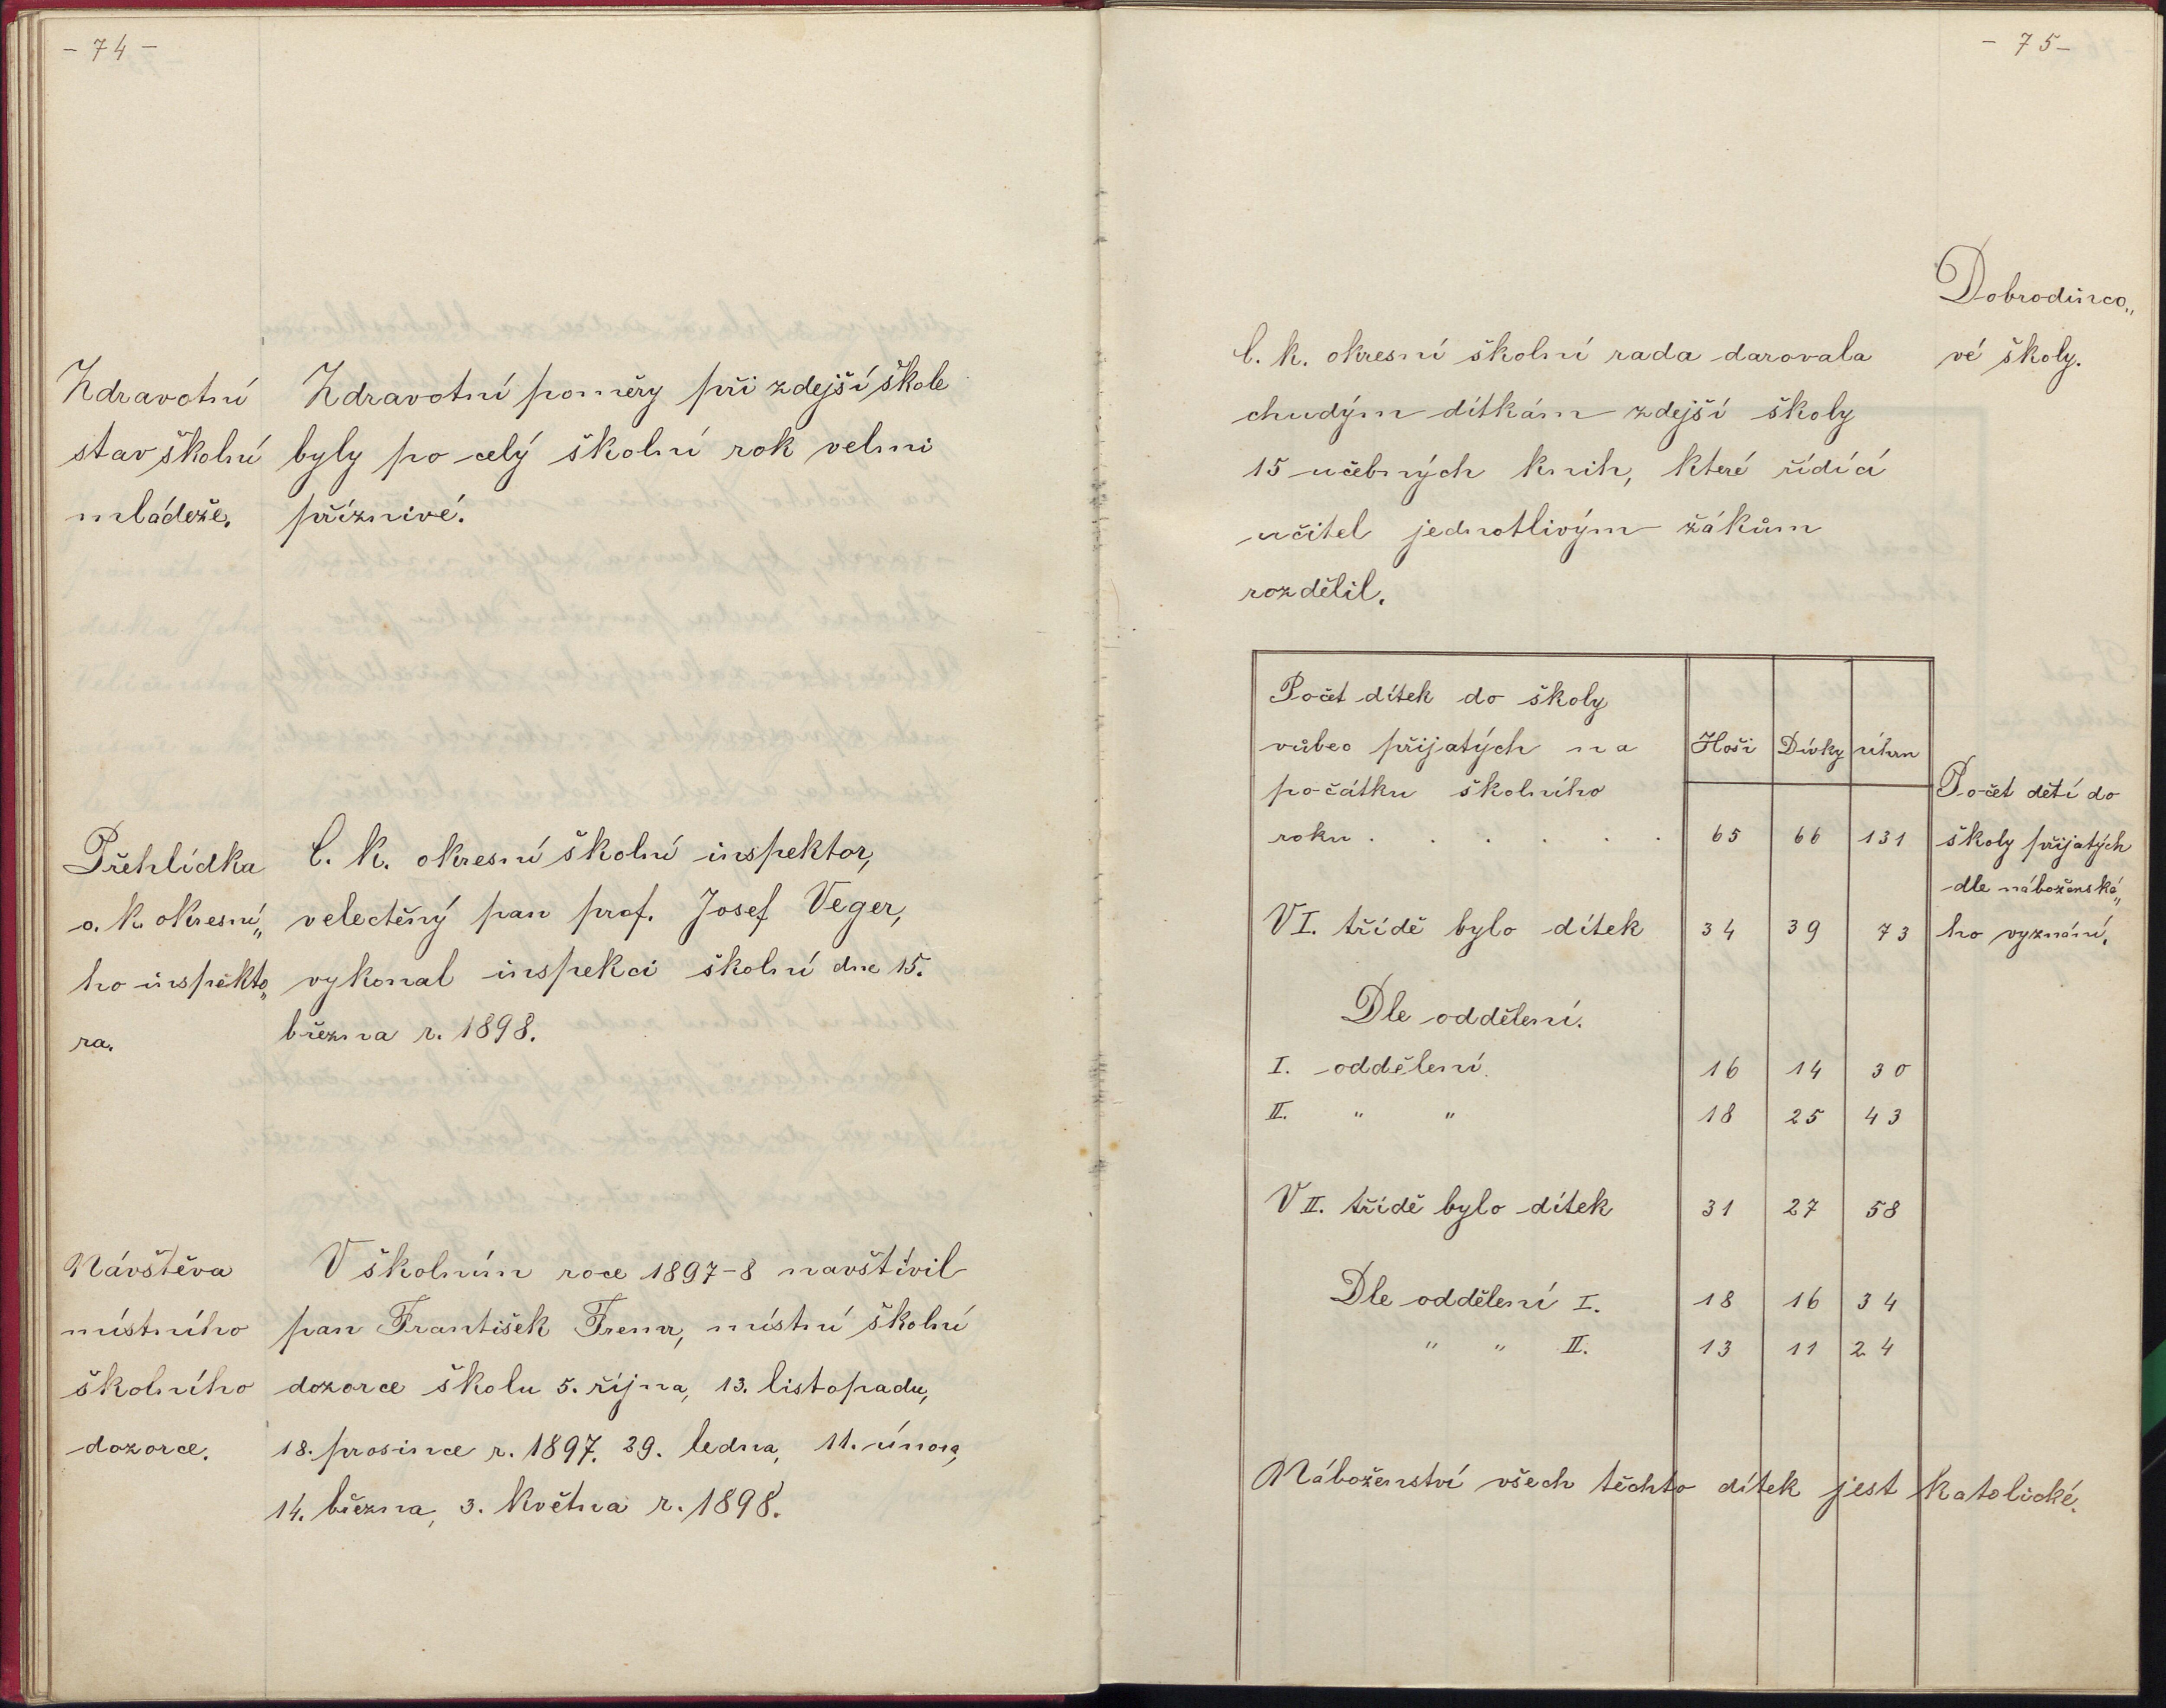 - 74 -
Zdravotní
stav školní
mládeže.
Zdravotní poměry při zdejší škole
byly po celý školní rok velmi
příznivé.
Přehlídka
c. k. okresní„
ho inspekto„
ra.
C. k. okresní školní inspektor,
velectěný pan prof. Josef Veger,
vykonal inspekci školní dne 15.
března r. 1898.
Návštěva
místního
školního
dozorce.
V školním roce 1897-8 navštívil
pan František , místní školní
dozorce školu 5. října, 13. listopadu,
18. prosince r. 1897. 29. ledna, 11. února,
14. března, 3. května r. 1898.
- 75 -
Dobrodinco„
vé školy.
C. k. okresní školní rada darovala
chudým dítkám zdejší školy
15 učebných knih, které řídící
učitel jednotlivým žákům
rozdělil.
Počet dítek do školy
vůbec přijatých na Hoši Dívky úhrn
počátku školního
roku . . . . . . 65 66 131
V I. třídě bylo dítek 34 39 73
Dle oddělení.
I. oddělení. 16 14 30
II. " " 18 25 43
V II. třídě bylo dítek 31 27 58
Dle oddělení I. 18 16 34
" " II. 13 11 24
Počet dětí do
školy přijatých
dle náboženské„
ho vyznání.
Náboženství všech těchto dítek jest katolické.